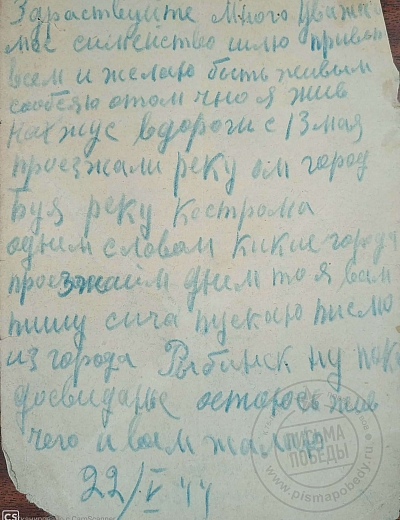 Здраствуйте много уважа
мое сименство шлю привет
всем и желаю быть живым
сообсяю отом что я жив
нахжус вдороги с 13 мая
проезжали реку ом город
Буя реку Кострома
одним словом кикие города
проезжаим дним то я вам
пишу сича пускаю писмо
из города Рыбинск ну пока
досвиданье остаюсь жив
чего и всем жалаю
22/V 44
ПИСЬМА
ПОБЕДЫ
www.pismapobedy.ru
CS
CamScanner